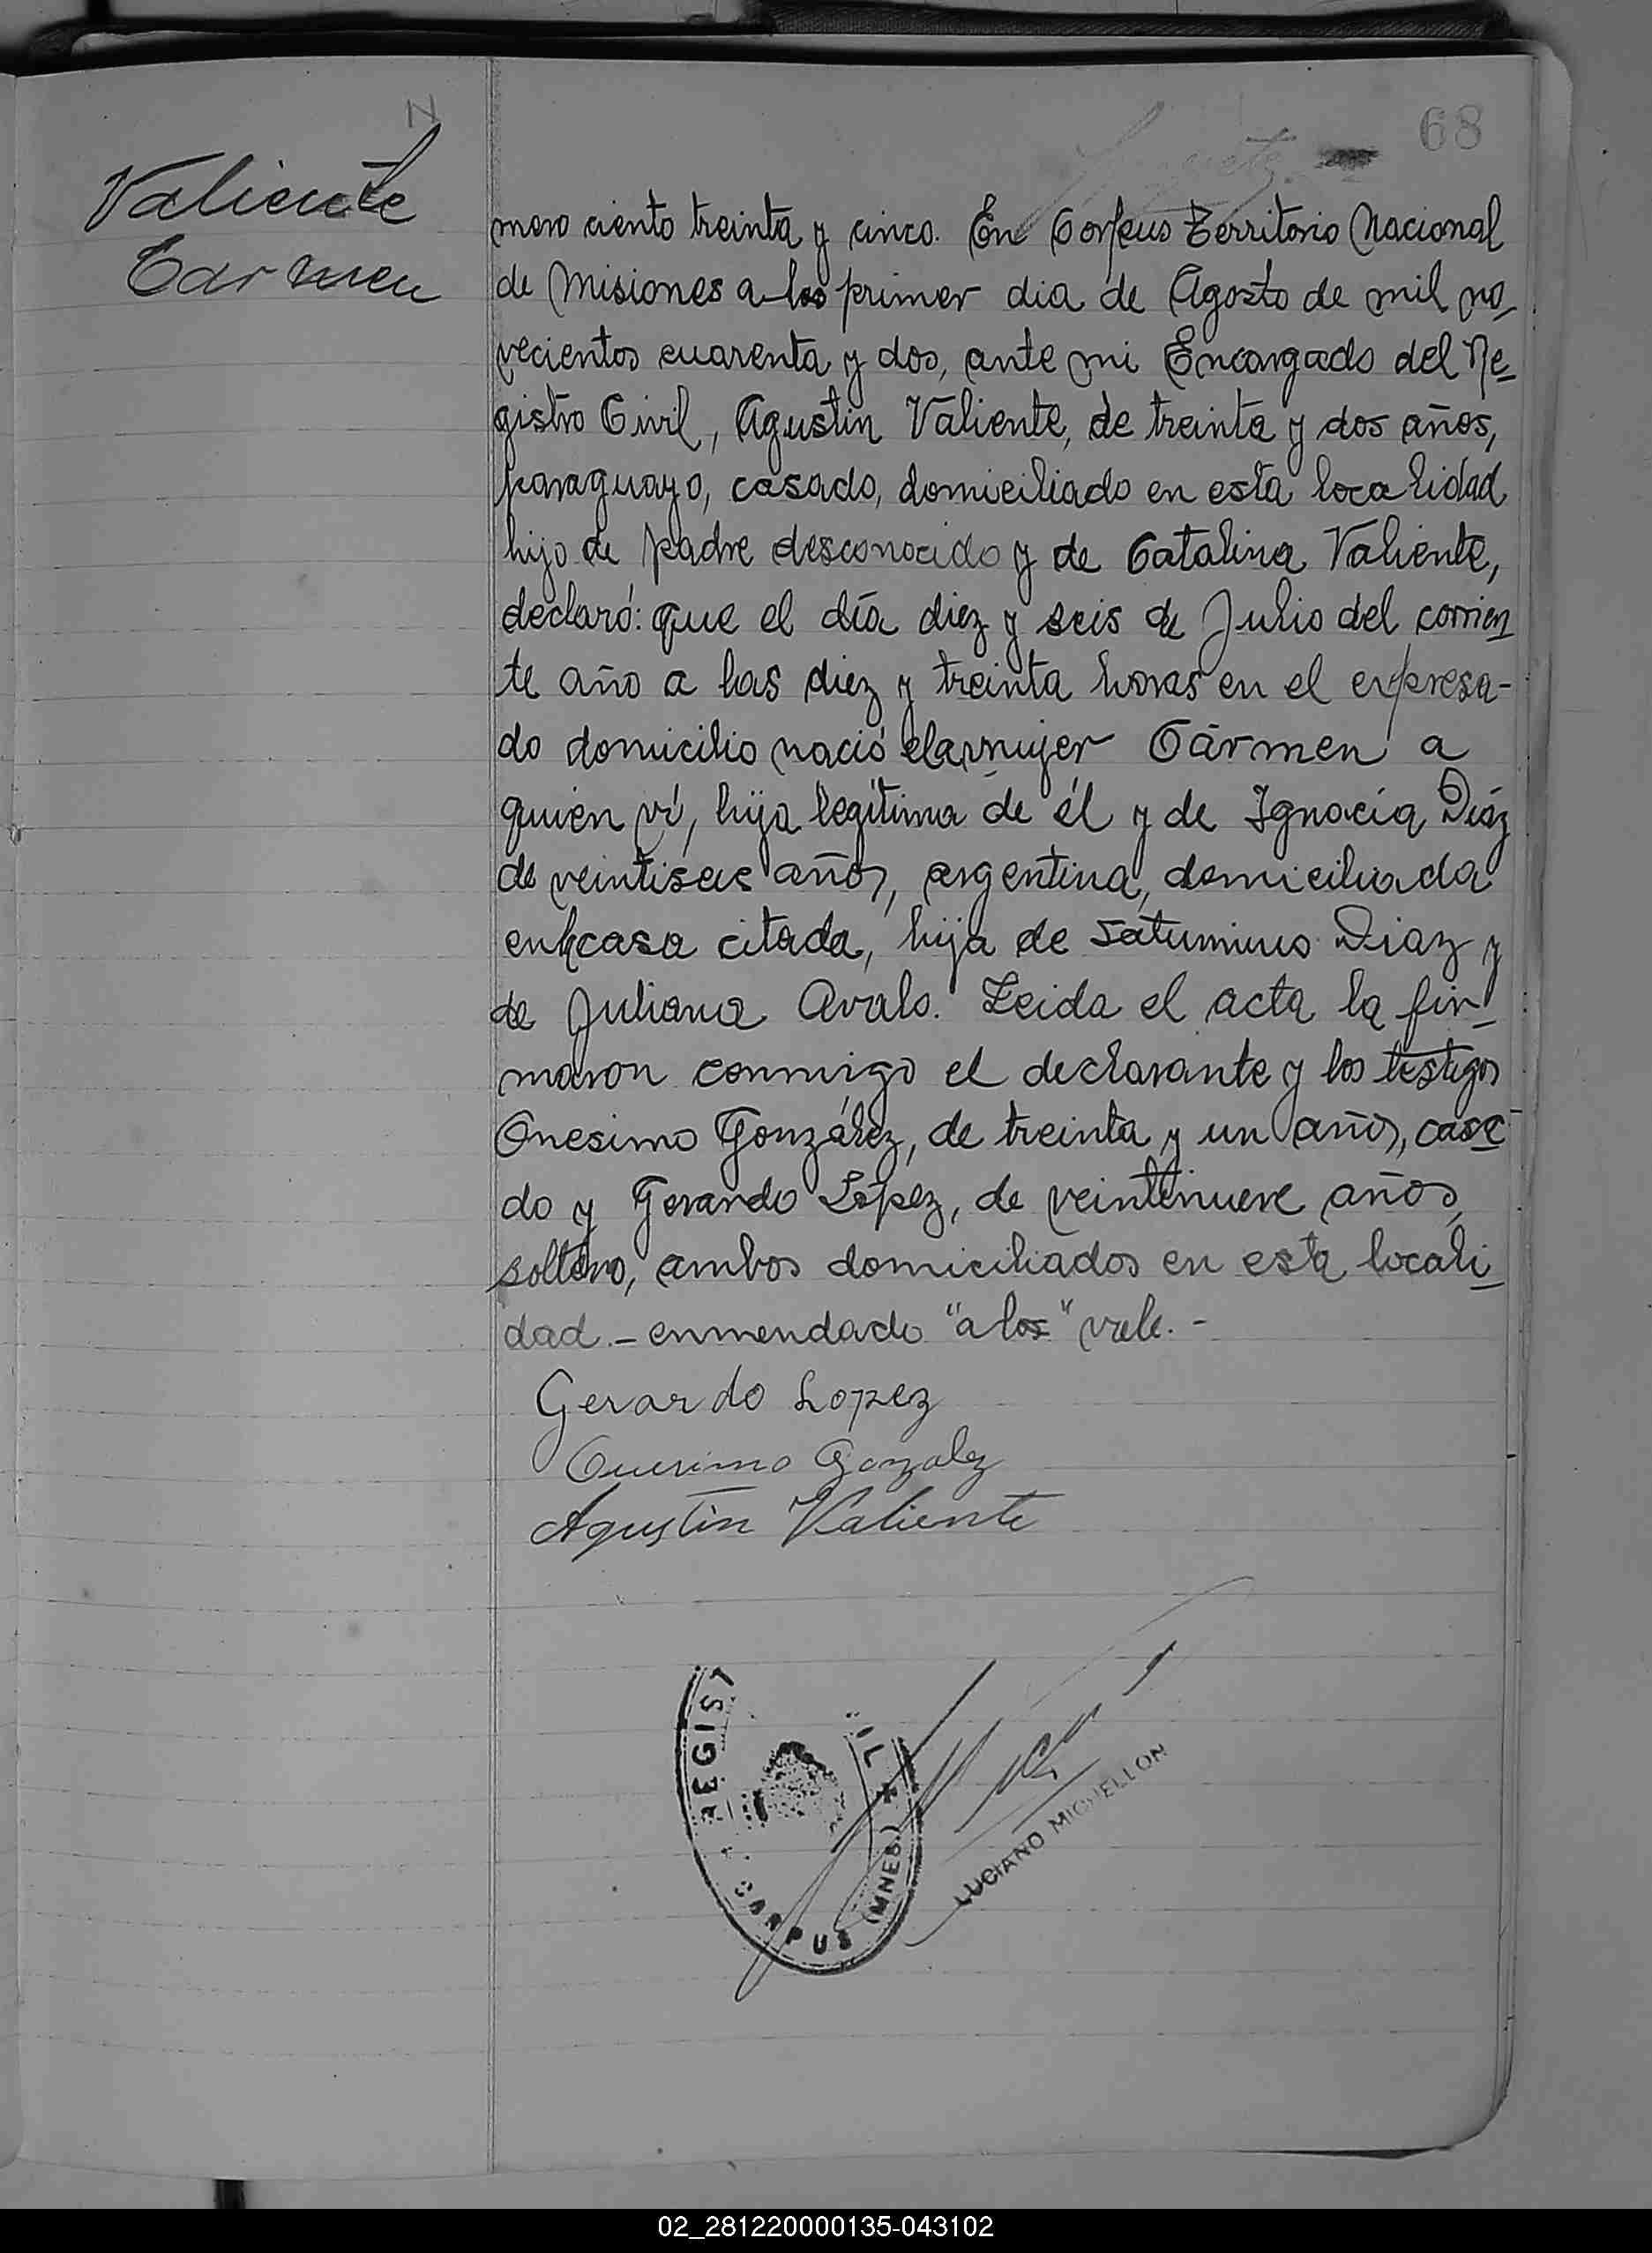 N
68
Valiente
Carmen
mero ciento treinta y cinco. En Corpus Territorio Nacional
de Misiones a los primer dia de Agosto de mil no-
vecientos cuarenta y dos, ante mi Encargado del Re-
gistro Civil, Agustin Valiente, de treinta y dos años,
paraguayo, casado, domiciliado en esta localidad
hijo de padre desconocido y de Catalina Valiente,
declaró: que el día diez y seis de Julio del corrien
te año a las diez y treinta horas en el expresa-
do domicilio nació la mujer Cármen a
quien ví, hija legítima de él y de Ignacia Diáz
de veintiseis años, argentina, domiciliada
en la casa citada, hija de Saturnino Diaz y
de Juliana Avalo. Leida el acta la fir-
maron conmigo el declarante y los testigos
Onesimo González, de treinta y un años, casa
do y Gerardo López, de veintinueve años,
soltero, ambos domiciliados en esta locali-
dad.- enmendado "a los" vale.-
Gerardo Lopez
Onesimo Gonzalez
Agustin Valiente
REGIST IL * CARPUS (MNES)
LUCIANO MICHELLON
02_281220000135-043102